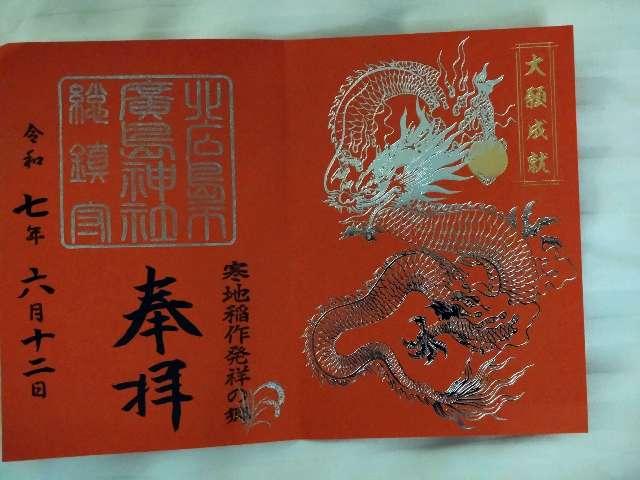 大願成就
寒地稲作発祥の郷
北広島市
廣島神社
総鎮守
奉拝
令和七年六月十二日